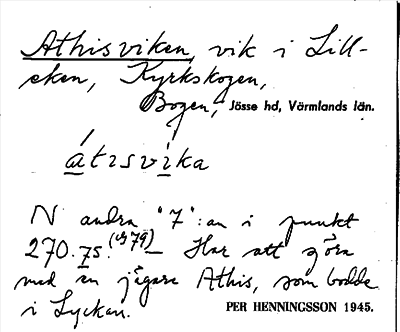 Athisviken, vik i Lill-
eken, Kyrkskogen,
Bogen, Jösse hd, Värmlands län.
átɪsvi̱ka
N andra "7":an i punkt
270.75. (ej 79) — Har att göra
med en jägare Athis, som bodde
i Lyckan. PER HENNINGSSON 1945.